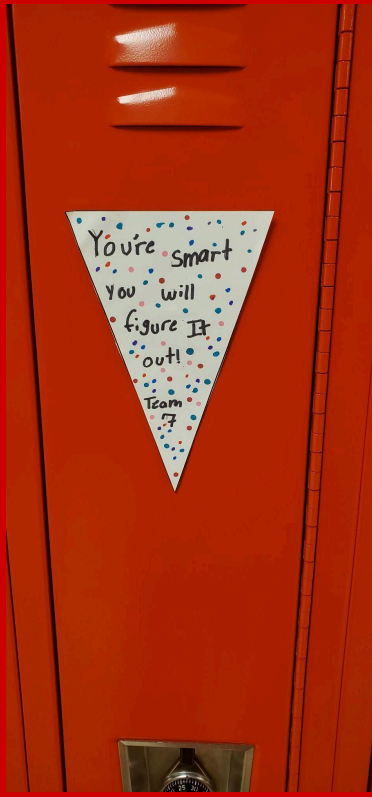 You're smart
you will
figure It
out!
Team
7
25 20